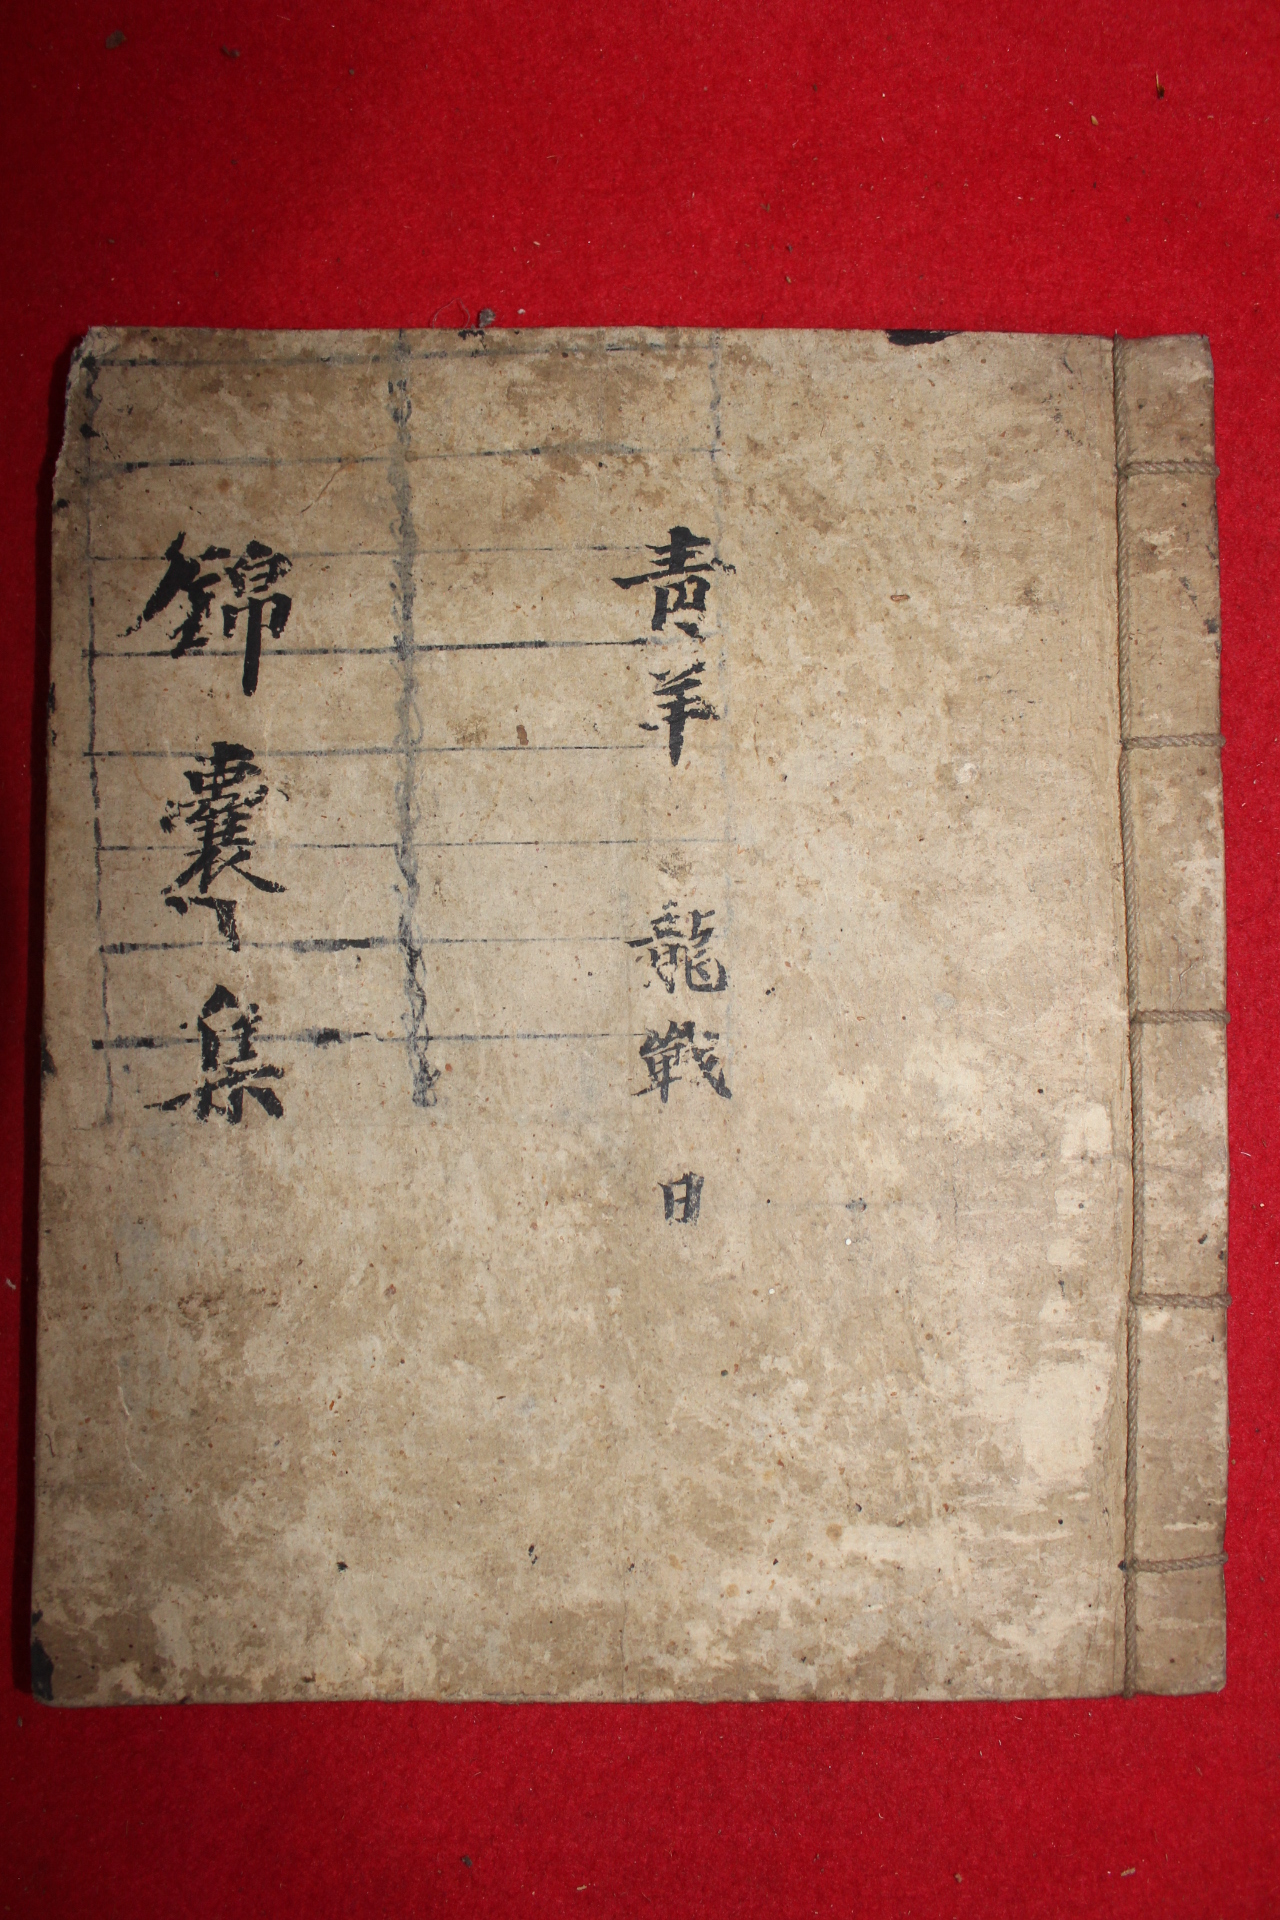 靑羊 龍戰 日
錦囊集